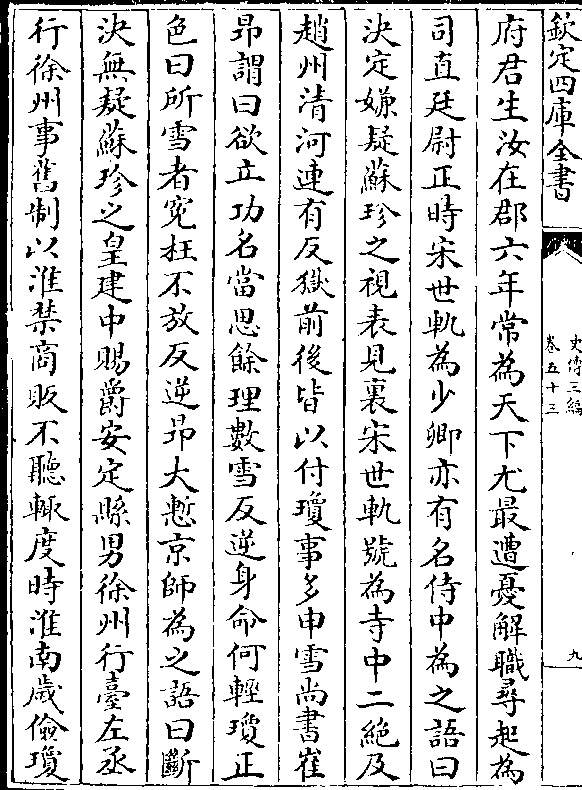 欽定四庫全書
史傳三編
卷五十三
九
府君生汝在郡六年常為天下尤最遭憂解職尋起為
司直廷尉正時宋世軌為少卿亦有名侍中為之語曰
決定嫌疑蘇珍之視表見裏宋世軌號為寺中二絶及
趙州清河連有反獄前後皆以付瓊事多申雪尚書崔
昂謂曰欲立功名當思餘理數雪反逆身命何輕瓊正
色曰所雪者寃枉不放反逆昂大慙京師為之語曰斷
決無疑蘇珍之皇建中賜爵安定縣男徐州行臺左丞
行徐州事舊制以淮禁商販不聽輒度時淮南歲儉瓊